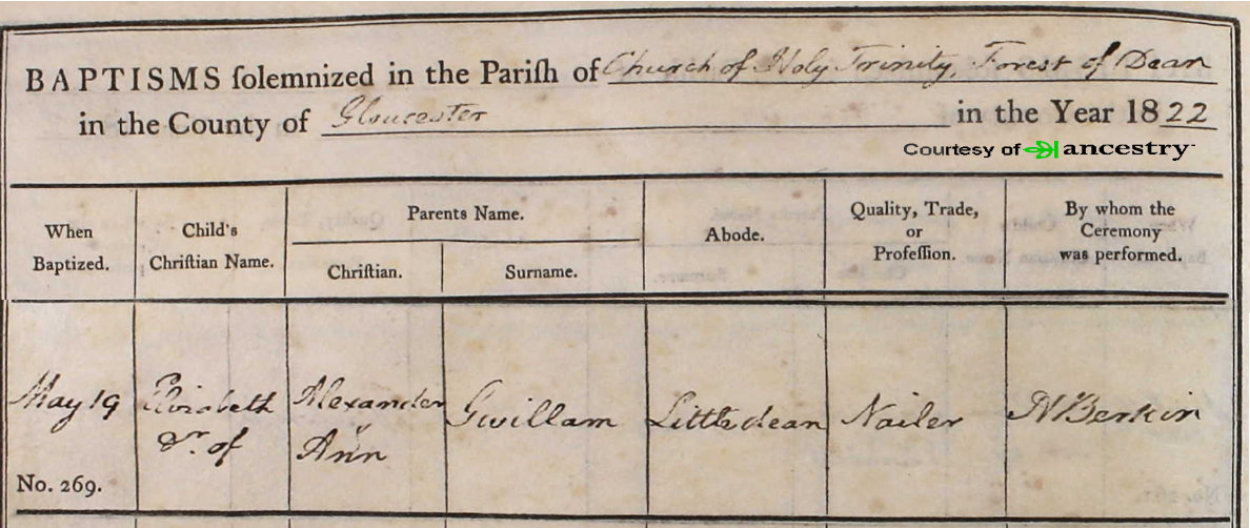 BAPTISMS ſolemnized in the Pariſh of Church of Holy Trinity, Forest of Dean
in the County of Gloucester in the Year 1822
Courtesy of ancestry
When Baptized.
Child's Chriſtian Name.
Parents Name.
Chriſtian.
Surname.
Abode.
Quality, Trade, or Profeſſion.
By whom the Ceremony was performed.
May 19
No. 269.
Elizabeth
Dr. of
Alexander
&
Ann
Gwillam
Littledean
Nailer
H Berkin